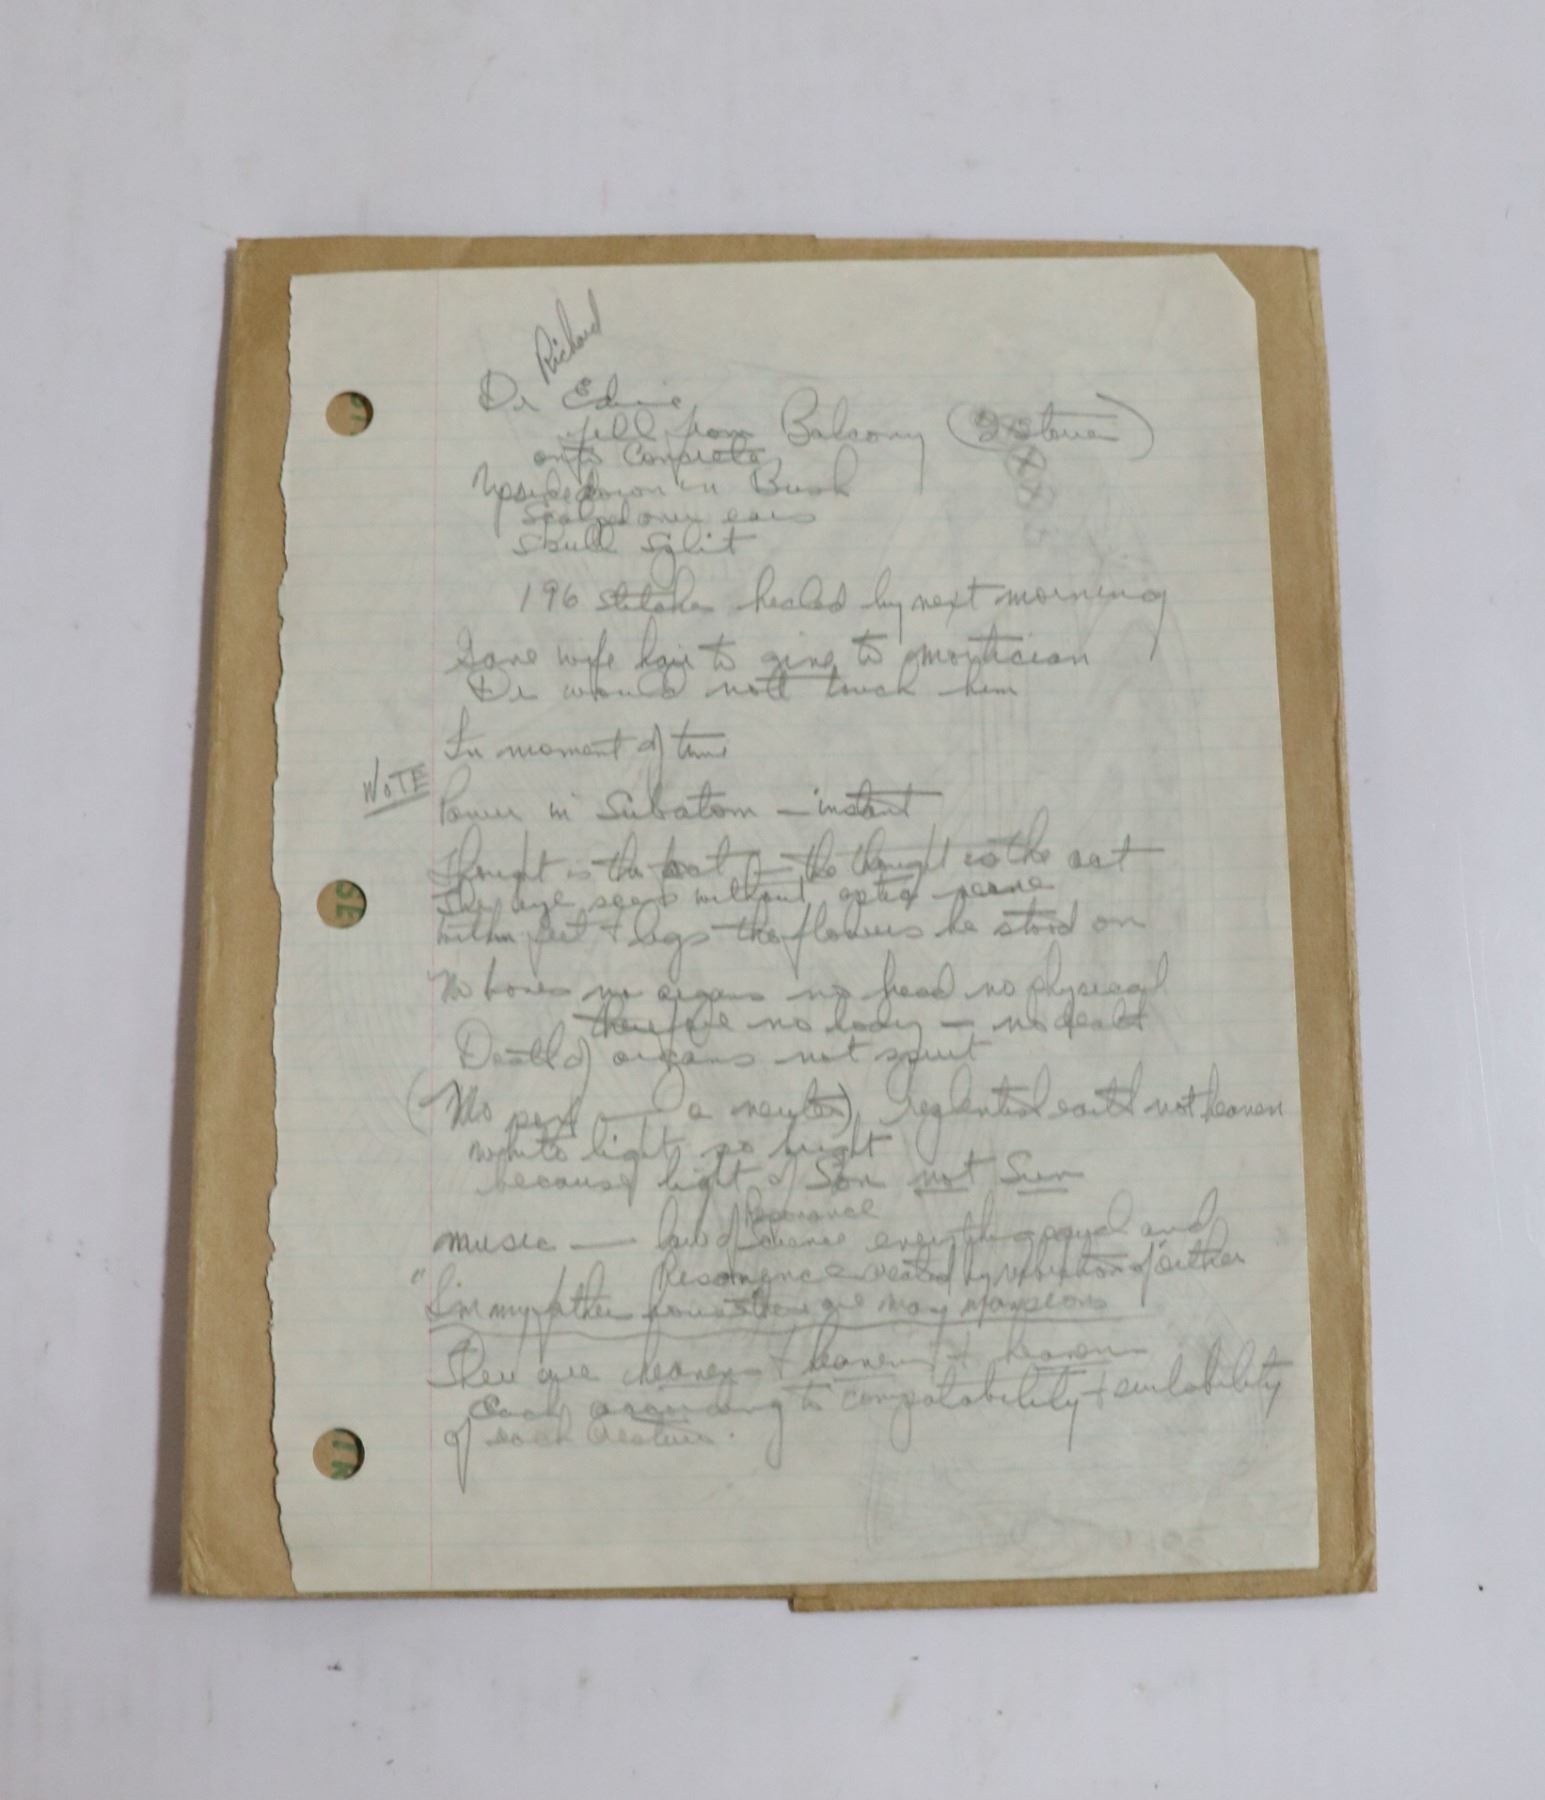 Richard
Dr Edie
fell from Balcony (2 stories)
onto Concrete
Upside down in Bush
Scalped over ears
Skull Split
196 stitches healed by next morning
Gave wife hair to give to mortician
Dr would not touch him
In moment of time
NOTE
Power in Subatom — instant
Thought is the — the thought is the act
The eye sees without optic nerve
within feet + legs the flowers he stood on
No bones no organs no head no physical
therefore no body — no death
Death of organs not spirit
(No — a neuter) earth not heaven
white light so bright
because light of Son not Sun
Resonance
music — law of everything and
Resonance created by vibration of either
"In my father house there are many mansions
There are heavens + heavens + heavens
Each according to compatability + suitability
of each
SE